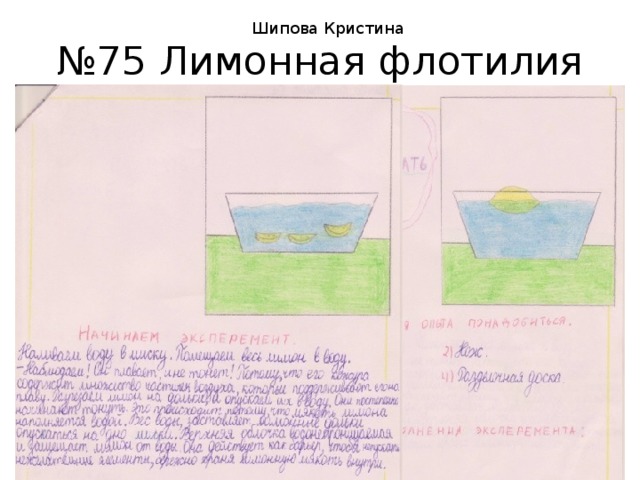 Шипова Кристина
№75 Лимонная флотилия
АТЬ
НАЧИНАЕМ ЭКСПЕРЕМЕНТ.
Наливаем воду в миску. Помещаем весь лимон в воду.
-Наблюдаем! Он плавает и не тонет! Потому, что его кожура
содержит множество частичек воздуха, которые поддерживают его на
плаву. Разрезаем лимон на дольки и опускаем их в воду. Они постепенно
начинают тонуть. Это происходит потому, что мякоть лимона
наполняется водой. Вес воды, заставляет лимонные дольки
опускаться на дно миски. Верхняя оболочка водонепроницаемая
и защищает лимон от воды. Она действует как барьер, чтобы не пускать
нежелательные элементы, бережно храня лимонную мякоть внутри.
Я ОПЫТА ПОНАДОБИТЬСЯ.
2) Нож.
4) Разделочная доска
ЛНЕНИЯ ЭКСПЕРЕМЕНТА: